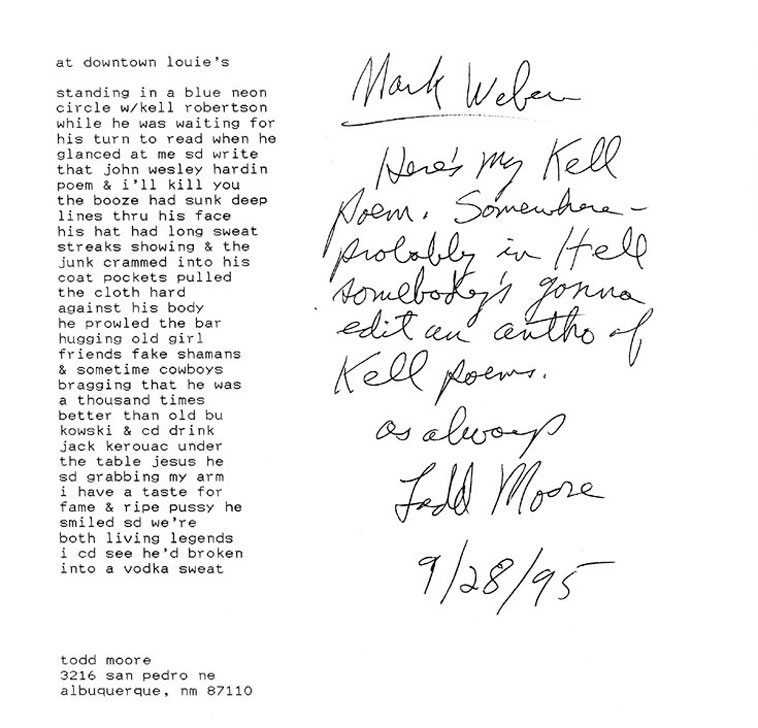 at downtown louie's
standing in a blue neon
circle w/kell robertson
while he was waiting for
his turn to read when he
glanced at me sd write
that john wesley hardin
poem & i'll kill you
the booze had sunk deep
lines thru his face
his hat had long sweat
streaks showing & the
junk crammed into his
coat pockets pulled
the cloth hard
against his body
he prowled the bar
hugging old girl
friends fake shamans
& sometime cowboys
bragging that he was
a thousand times
better than old bu
kowski & cd drink
jack kerouac under
the table jesus he
sd grabbing my arm
i have a taste for
fame & ripe pussy he
smiled sd we're
both living legends
i cd see he'd broken
into a vodka sweat
todd moore
3216 san pedro ne
albuquerque, nm 87110
Mark Weber
Here's my Kell
poem. Somewhere –
probably in Hell
somebody's gonna
edit an antho of
Kell poems.
as always
Todd Moore
9/28/95